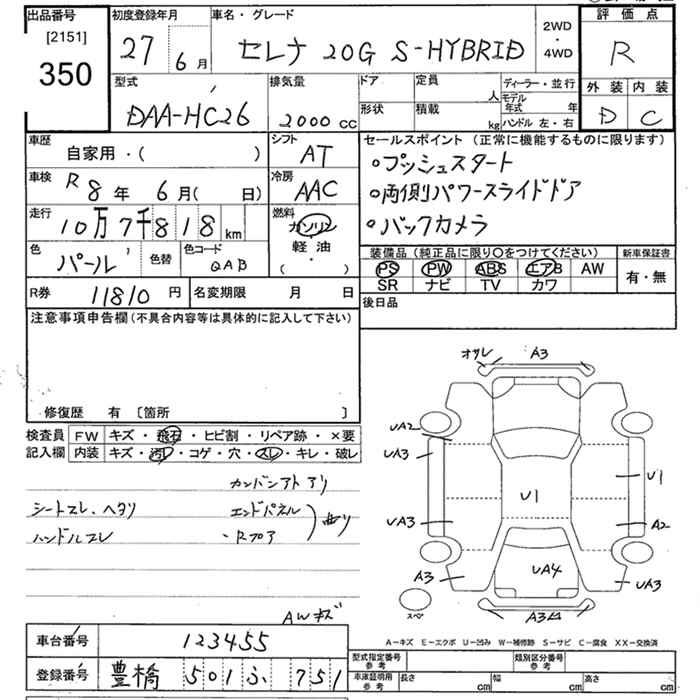 出品番号
[2151]
350
初度登録年月
27 6月
車名・グレード
セレナ 20G S-HYBRID
2WD
・
4WD
評価点
R
外装 内装
D C
型式
DAA-HC26
排気量
2000 CC
ドア
定員
人
形状
積載
kg
ディーラー・並行
モデル年式 年
ハンドル 左・右
車歴
自家用・( )
シフト
AT
セールスポイント (正常に機能するものに限ります)
○プッシュスタート
○両側パワースライドドア
○バックカメラ
車検
R 8年 6月( 日)
冷房
AAC
走行
10万7千818 km
燃料
ガソリン
軽油
( ・ )
色
パール
色替
色コード
QAB
装備品 (純正品に限り○をつけてください)
PS PW ABS エアB AW
SR ナビ TV カワ
新車保証書
有・無
R券 11810 円
名変期限 月 日
後日品
注意事項申告欄 (不具合内容等は具体的に記入して下さい)
修復歴 有 [箇所 ]
検査員
記入欄
FW キズ・飛石・ヒビ割・リペア跡・×要
内装 キズ・汚レ・コゲ・穴・スレ・キレ・破レ
カンバンアトアリ
シートスレ、ヘタリ
ハンドルスレ
エンドパネル
・Rフロア
曲リ
AWキズ
オサレ A3
UA2
UA3
U1
U1
UA3
A2
A3
UA4
UA3
スペア
A3
A-キズ E-エクボ U-凹み W-補修跡 S-サビ C-腐食 XX-交換済
車台番号 123455
登録番号 豊橋 501 ふ 751
型式指定番号
参考
類別区分番号
参考
車庫証明用
参考
長さ cm
幅 cm
高さ cm